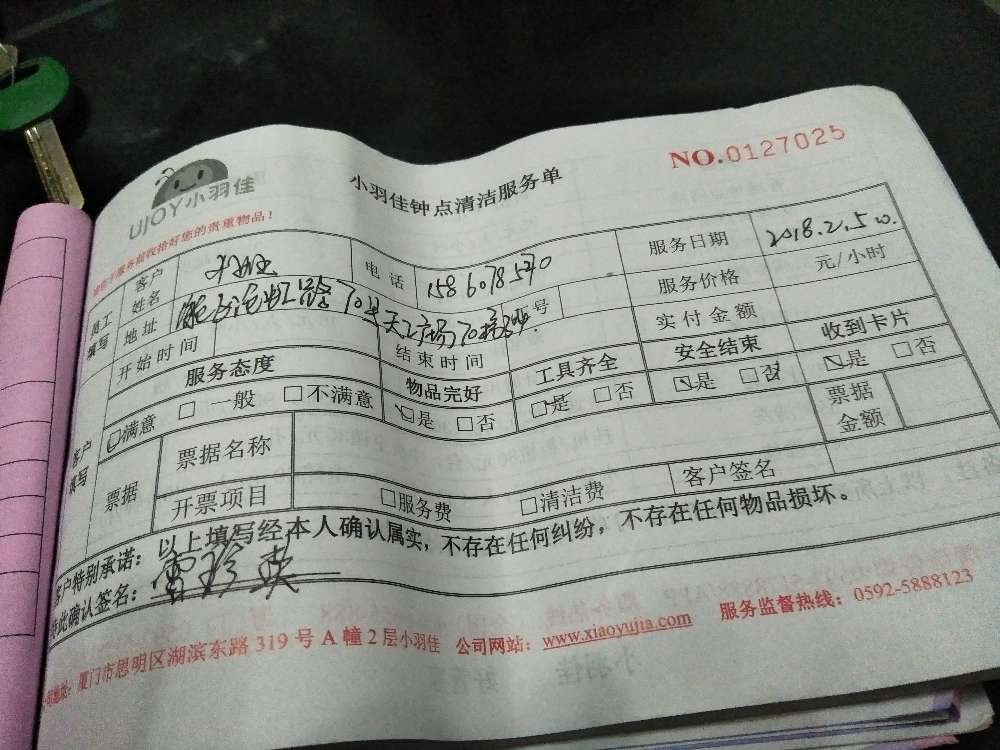 UJOY小羽佳
小羽佳钟点清洁服务单
NO.0127025
请您于服务前收拾好您的贵重物品！
员工填写 客户姓名 电话 服务日期 2018.2.5
地址 70 70 号 服务价格 元/小时
开始时间 结束时间 实付金额
客户填写 服务态度 物品完好 工具齐全 安全结束 收到卡片
□满意 □一般 □不满意 □是 □否 □是 □否 □是 □否 □是 □否
票据 票据名称 票据金额
开票项目 □服务费 □清洁费 客户签名
客户特别承诺：以上填写经本人确认属实，不存在任何纠纷，不存在任何物品损坏。
特此确认签名：雷珍英
公司地址：厦门市思明区湖滨东路319号A幢2层小羽佳 公司网站：www.xiaoyujia.com 服务监督热线：0592-5888123